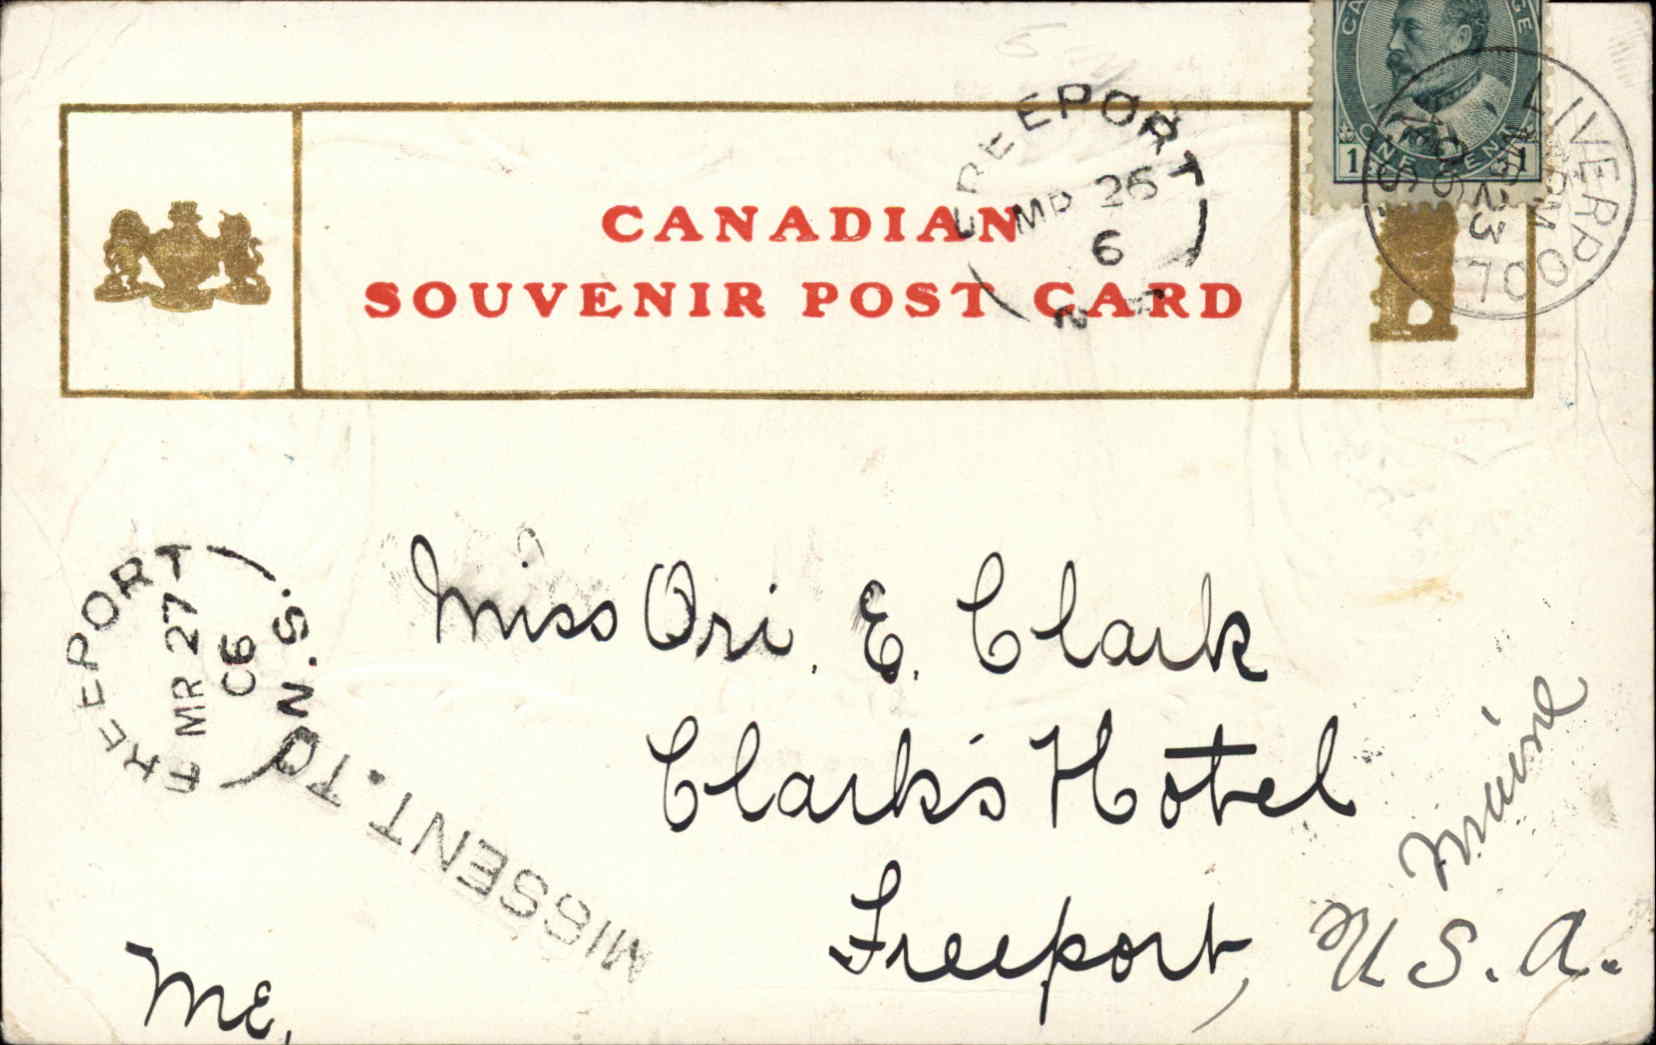 CANADIAN
SOUVENIR POST CARD
FREEPORT
MR 26
6
N
LIVERPOOL
PM
MR 23
06
N.S.
1
1
FREEPORT
MR 27
06
N.S.
MISSENT. TO
Miss Ori. E. Clark
Clark's Hotel
Freeport,
Maine
U.S.A.
Me.